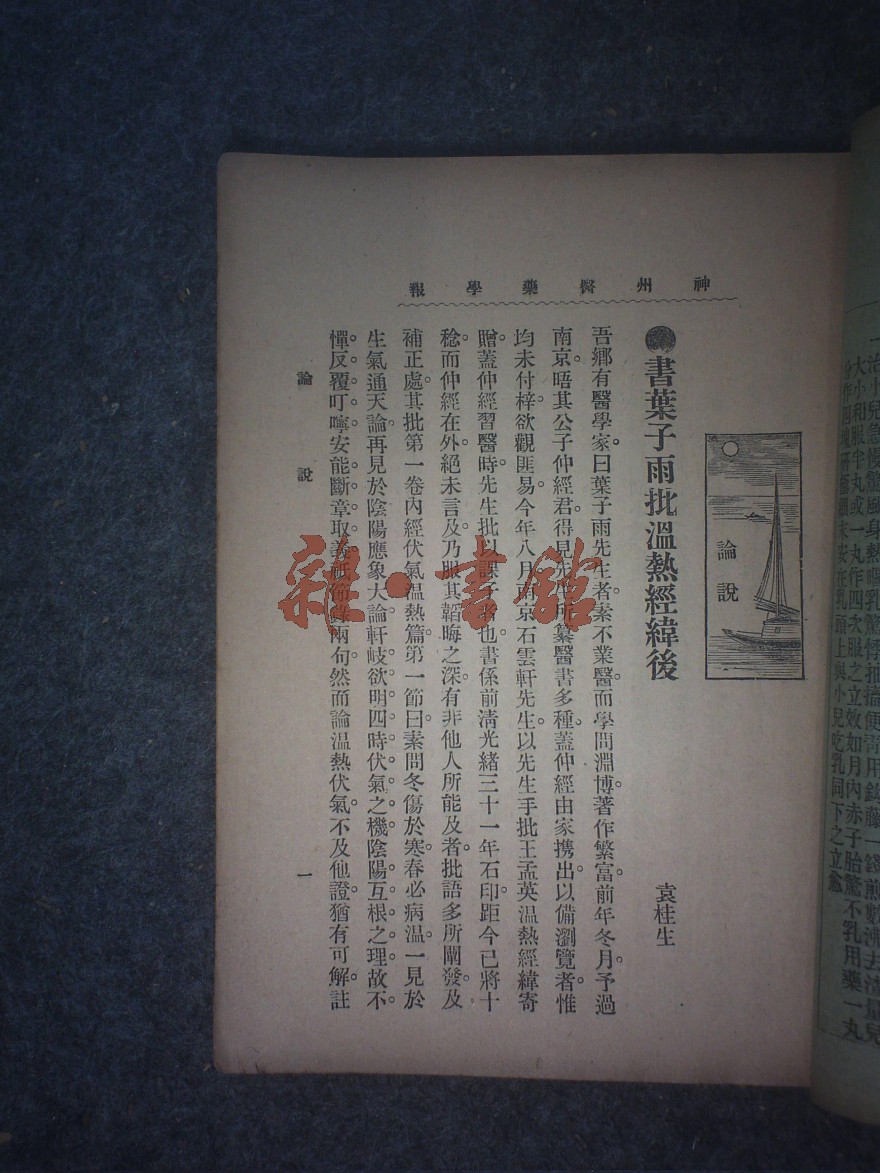 神州醫藥學報
論說
書葉子雨批溫熱經緯後
袁桂生
吾鄉有醫學家。曰葉子雨先生者。素不業醫。而學問淵博。著作繁富。前年冬月。予過
南京。晤其公子仲經君。得見先生所纂醫書多種。蓋仲經由家攜出以備瀏覽者。惟
均未付梓。欲觀匪易。今年八月。南京石雲軒先生。以先生手批王孟英溫熱經緯寄
贈。蓋仲經習醫時。先生批以課子者也。書係前清光緒三十一年石印。距今已將十
稔。而仲經在外。絕未言及。乃服其韜晦之深。有非他人所能及者。批語多所闡發及
補正處。其批第一卷內經伏氣溫熱篇。第一節曰。素問冬傷於寒。春必病溫。一見於
生氣通天論。再見於陰陽應象大論。軒岐欲明四時伏氣之機。陰陽互根之理。故不
憚反覆叮嚀。安能斷章取義。祇節錄兩句。然而論溫熱伏氣。不及他證。猶有可解。註
論說
一
一治小兒急慢驚風身熱
大小和服半丸或一丸作四次服之立效如月內赤子胎驚不乳用藥一丸
末安在乳頭上與小兒吃乳同下之立愈
雜·書館